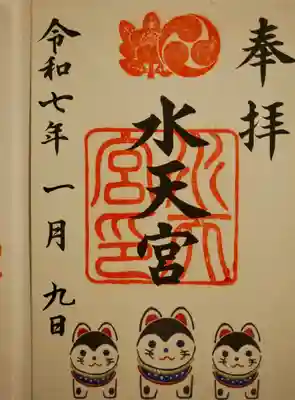 奉拝
水天宮
水天宮印
令和七年 一月 九日